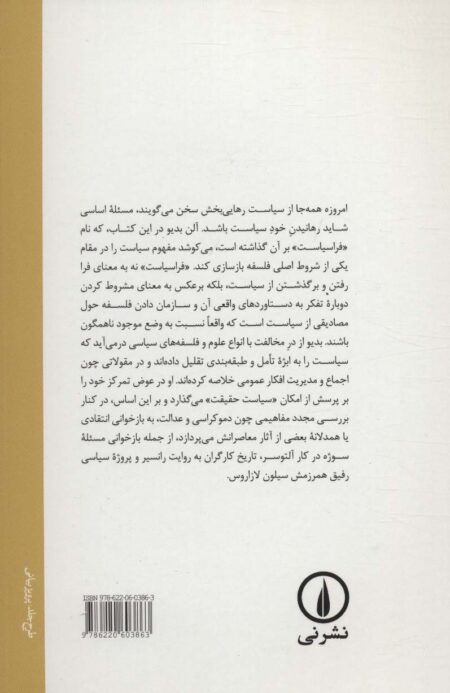 امروزه همه‌جا از سیاست رهایی‌بخش سخن می‌گویند، مسئلهٔ اساسی
شاید رهانیدنِ خودِ سیاست باشد. آلن بدیو در این کتاب، که نام
«فراسیاست» بر آن گذاشته است، می‌کوشد مفهوم سیاست را در مقام
یکی از شروط اصلی فلسفه بازسازی کند. «فراسیاست» نه به معنای فرا
رفتن و برگذشتن از سیاست، بلکه برعکس به معنای مشروط کردن
دوبارهٔ تفکر به دستاوردهای واقعی آن و سازمان دادن فلسفه حول
مصادیقی از سیاست است که واقعاً نسبت به وضع موجود ناهمگون
باشند. بدیو از درِ مخالفت با انواع علوم و فلسفه‌های سیاسی درمی‌آید که
سیاست را به ابژهٔ تأمل و طبقه‌بندی تقلیل داده‌اند و در مقولاتی چون
اجماع و مدیریت افکار عمومی خلاصه کرده‌اند. او در عوض تمرکز خود را
بر پرسش از امکان «سیاست حقیقت» می‌گذارد و بر این اساس، در کنار
بررسی مجدد مفاهیمی چون دموکراسی و عدالت، به بازخوانی انتقادی
یا همدلانهٔ بعضی از آثار معاصرانش می‌پردازد، از جمله بازخوانی مسئلهٔ
سوژه در کار آلتوسر، تاریخ کارگران به روایت رانسیر و پروژهٔ سیاسی
رفیق همرزمش سیلون لازاروس.
ISBN 978-622-06-0386-3
9 786220 603863
نشرنی
طرح جلد: پرویز بیانی